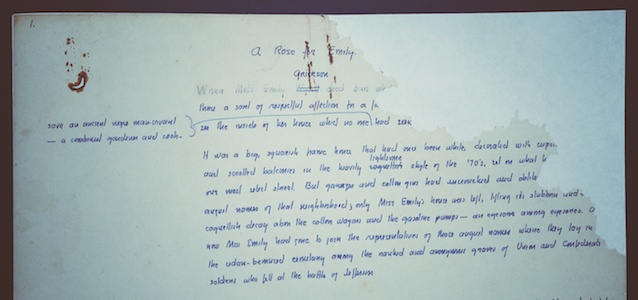 1.
A Rose for Emily.
When Miss Emily died
thru a sort of respectful affection for a fa
save an ancient negro man-servant
in the inside of her house which no one had seen
— a combined gardener and cook-
It was a big, squarish frame house that had once been white, decorated with cupo
lightsome
and scrolled balconies in the heavily style of the '70's, set on what
our most select street. But garages and cotton gins had encroached and oblite
august names of that neighborhood; only Miss Emily's house was left, lifting its stubborn and
coquettish decay above the cotton wagons and the gasoline pumps— an eyesore among eyesores. A
now Miss Emily had gone to join the representatives of those august names where they lay in
the cedar-bemused cemetery among the ranked and anonymous graves of Union and Confederate
soldiers who fell at the battle of Jefferson